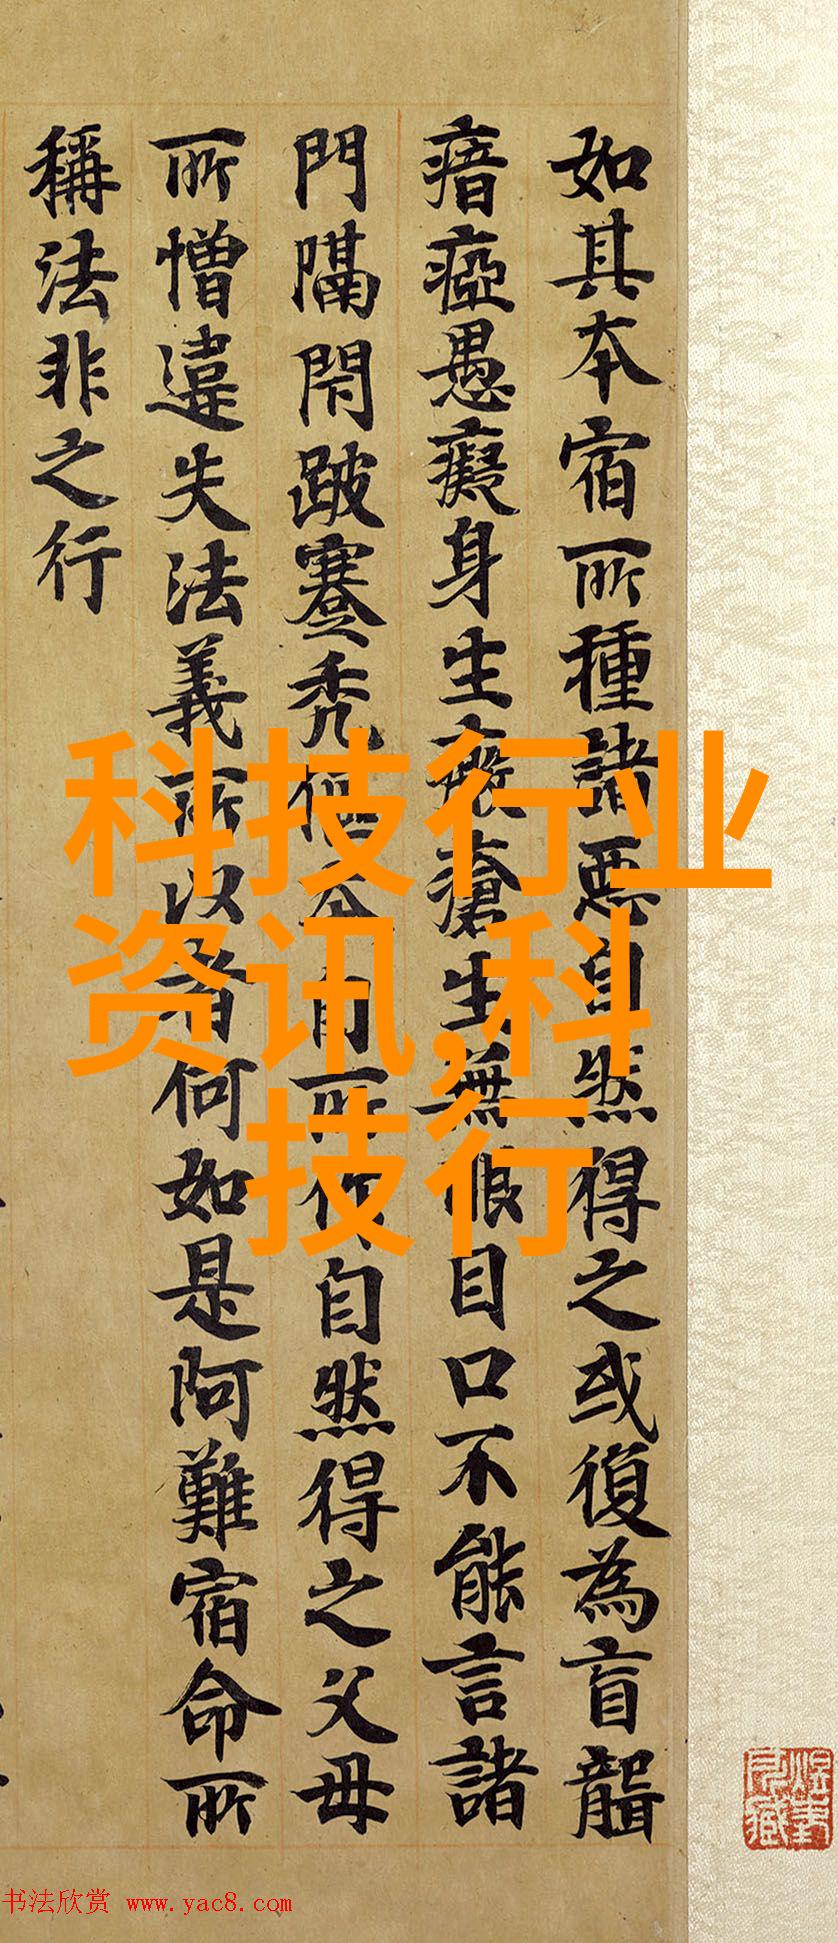 如其本宿所種諸惡自然得之或復為盲聾
瘖瘂愚癡身生瘡生無眼目口不能言諸
門隔閇跛蹇秃傴本自所作自然得之父母
所憎違失法義所以者何如是阿難宿命所
稱法非之行
科技行业
资讯,科
技行
书法欣赏 www.yac8.com